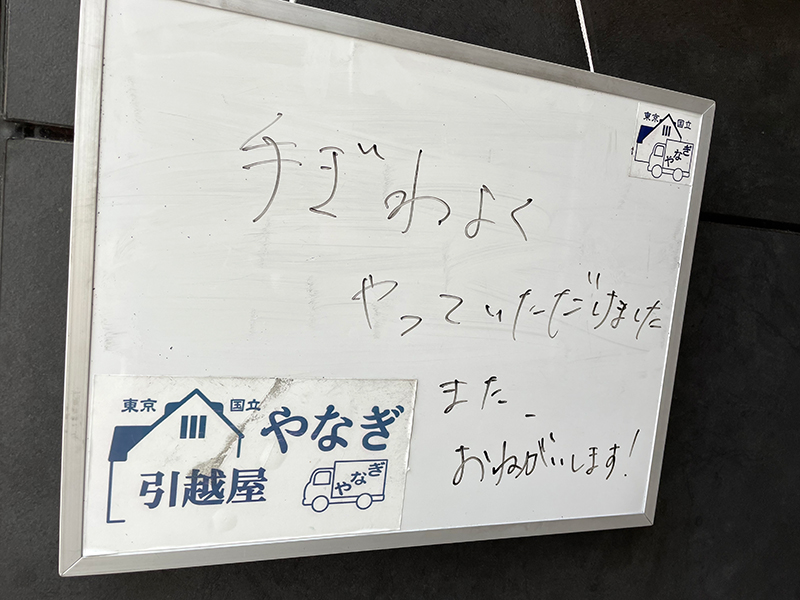 東京 国立
やなぎ
手ぎわよく
やっていただけました
また、
おねがいします!
東京 国立
やなぎ
引越屋
やなぎ